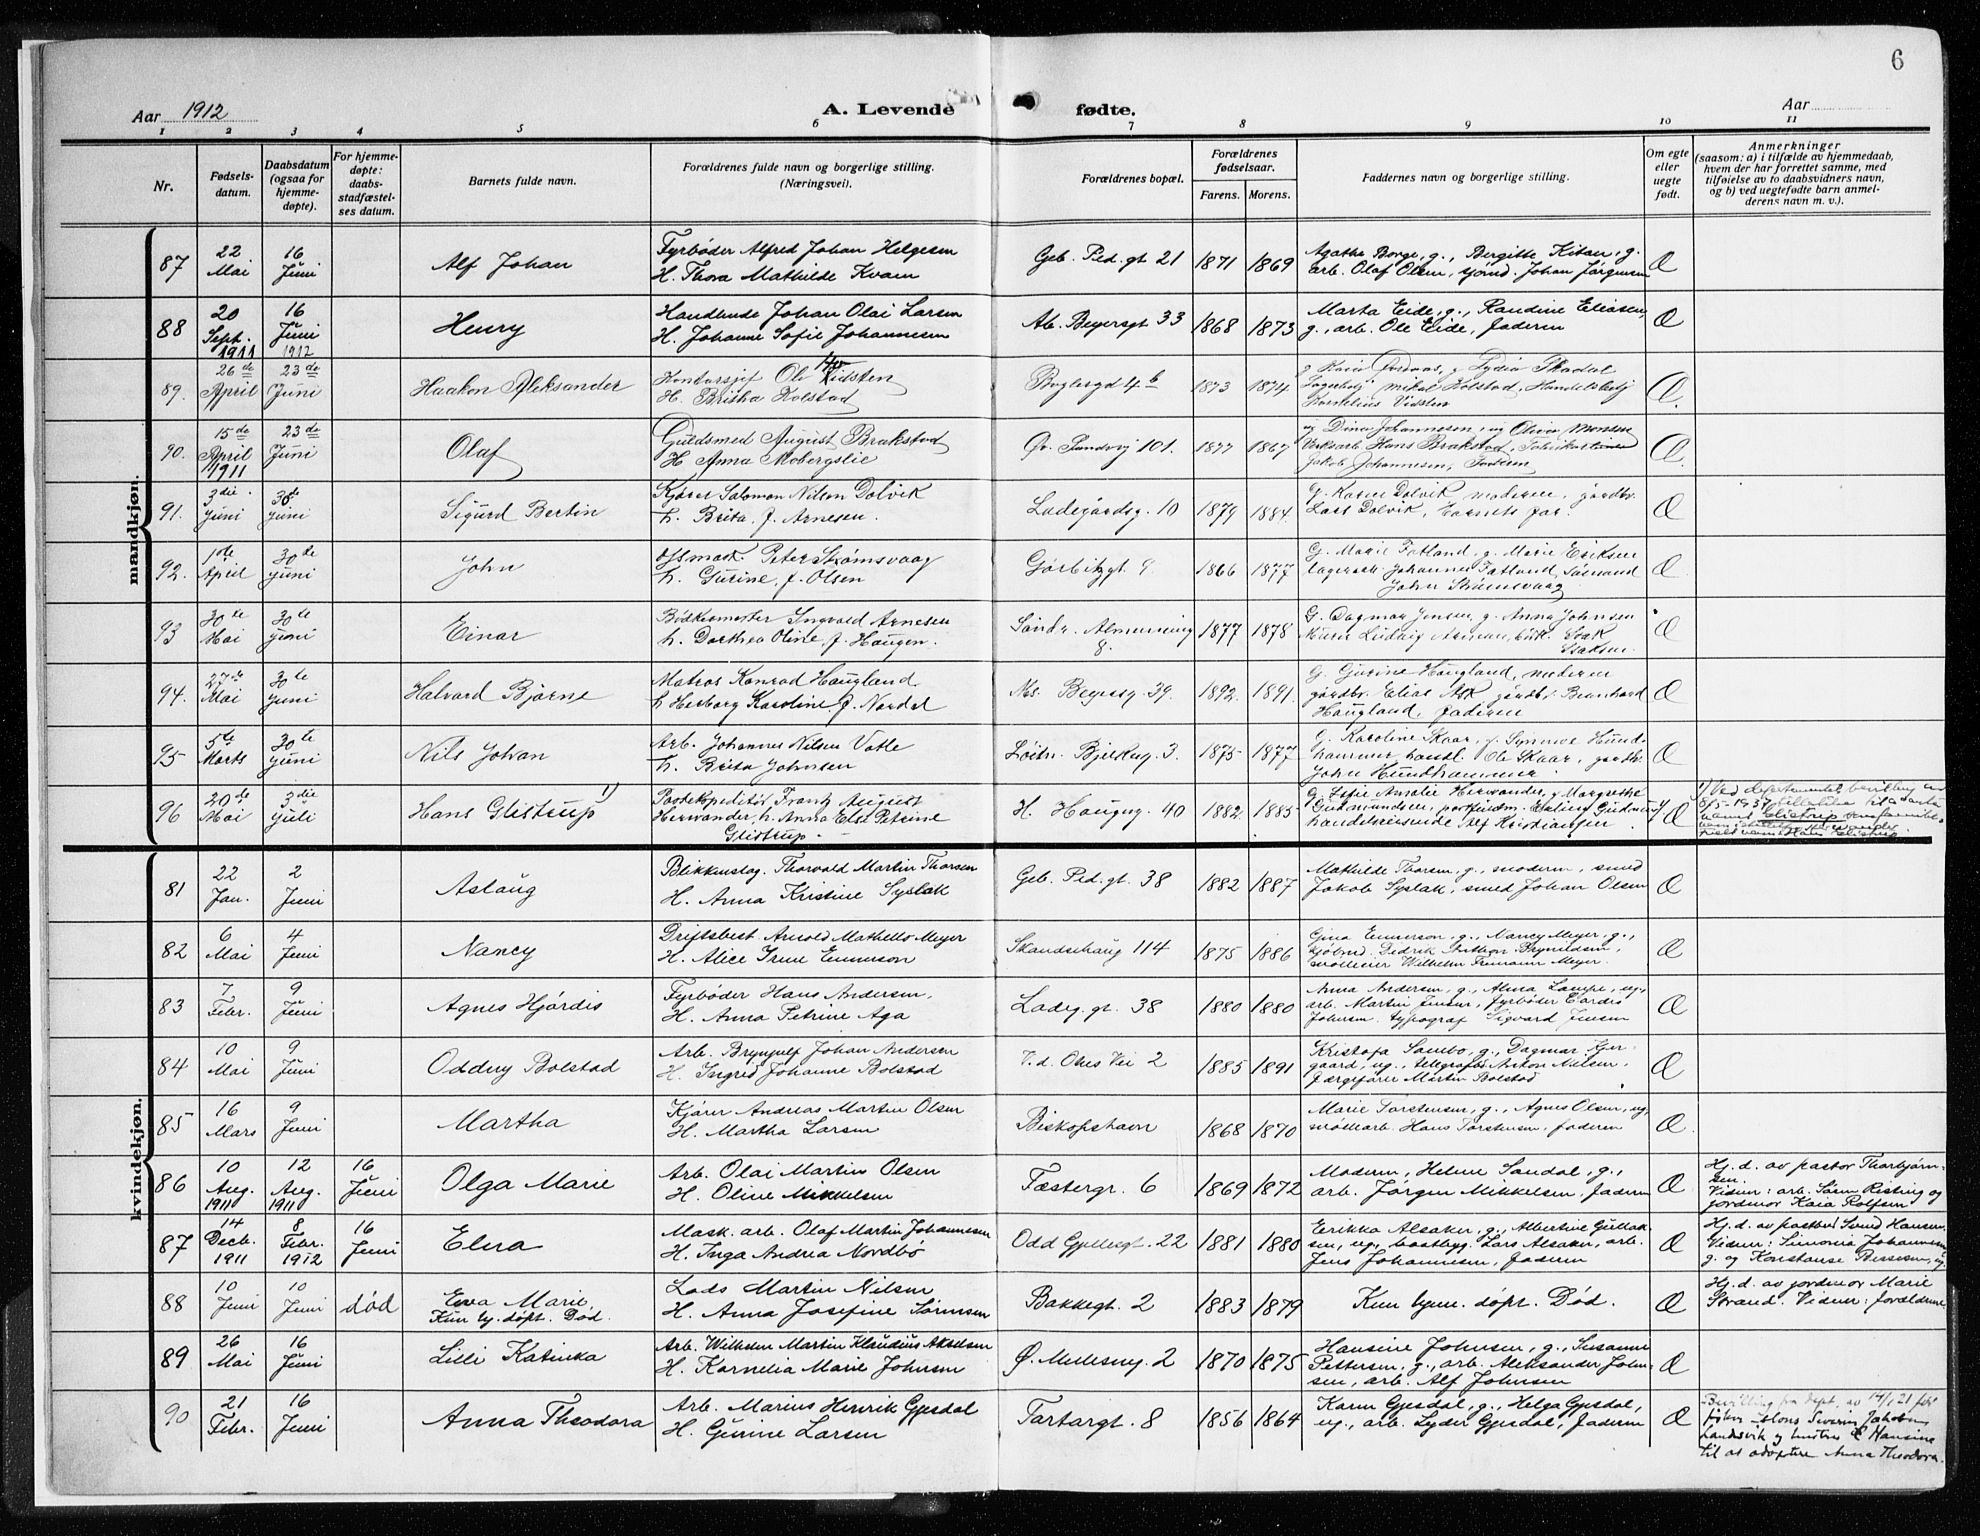 6
Aar 1912
A. Levende fødte.
Aar
1 2 3 4 5 6 7 8 9 10 11
Nr.
Fødsels-
datum.
Daabsdatum
(ogsaa for
hjemme-
døpte).
For hjemme-
døpte:
daabs-
stadfæstel-
ses datum.
Barnets fulde navn.
Forældrenes fulde navn og borgerlige stilling.
(Næringsvei).
Forældrenes bopæl.
Forældrenes
fødselsaar.
Farens. Morens.
Faddernes navn og borgerlige stilling.
Om egte
eller
uegte
født.
Anmerkninger
(saasom: a) i tilfælde av hjemmedaab,
hvem der har forrettet samme, med
tilføielse av to daabsvidners navn,
og b) ved uegtefødte barn anmel-
derens navn m. v.).
mandkjøn.
87
22 Mai
16 Juni
Alf Johan
Fyrbøder Alfred Johan Helgesen
H. Thora Mathilde Kvam
Geb. Ped. gt 21
1871 1869
Agathe Borge, g., Bergitte Kitaer, g.
arb. Olaf Olsen, sjömd. Johan Jörgensen
Æ
88
20 Sept. 1911
16 Juni 1912
Henry
Handlende Johan Olai Larsen
H. Johanne Sofie Johannesen
Ab. Beyersgt 33
1868 1873
Marta Eide, g., Randine Eliasen,
g., arb. Ole Eide, faderen
Æ
89.
26de April
23de Juni
Haakon Aleksander
Kontorsjef Ole Vidsten
H. Britha Kolstad
Boglergd 4b
1873 1874
Mikal Kolstad, Handelsbetj
Kornelius Vidsten
Æ.
90.
15de April 1911
23de Juni
Olaf
Guldsmed August Brakstad
H Anna Mobergslie
Øv. Sandvig 101.
1877 1867
ug Dina Johannesen, ug Olivia Monsen
Verksarb. Hans Brakstad,
Jakob Johannesen, Faderen
Æ.
91.
3die Juni
30te Juni
Sigurd Bertin
Kjører Salomon Nilsen Dolvik
h. Brita, f. Arnesen.
Ladegårdsg. 10
1879 1884
g. Karen Dolvik, moderen, gårdbr.
Lars Dolvik, Barnets far.
Æ
92.
1ste April
30te Juni
John
Peter Strømsvaag
h. Gurine, f. Olsen
Gørbitzgt 9
1866 1877
G. Marie Fatland, g. Marie Eriksen
lagersch. Johannes Fatland, Sømand
John Strømsvaag
Æ
93
30te Mai
30te Juni
Einar
Bödkermester Ingvald Arnesen
h. Dorthea Oline, f. Haugen.
Søndr. Almenning
8.
1877 1878
G. Dagmar Jensen, g. Anna Johnsen
Ludvig Arnesen, bödk. Isak
Isaksen.
Æ
94.
27de Mai
30te Juni
Halvard Bjarne
Matros Konrad Haugland
h Herborg Karoline f. Nordal
Ab. Beyersg. 39.
1892. 1891.
G. Gurine Haugland, moderen
gårdbr. Elias Ask gårdbr. Bernhard
Haugland, faderen
Æ
95
5te Marts
30te Juni
Nils Johan
Arb. Johannes Nilsen Vatle
h. Brita Johnsen
Löitn. Bjelkesg. 3.
1875 1877
G. Karoline Skaar, g. Synnöve Hund-
hammer, handl. Ole Skaar, gårdbr.
John Hundhammer.
Æ
96
20de Mai
3die Juli
Hans Glistrup 1)
Postekspeditör Frantz August
Herwander, h. Anna Else Petrine
Glistrup.
H. Haugvg. 40
1882. 1885
g. Effie Amalie Herwander, g Margrethe
Gudmundsen, postfuldm. Erling Gudmundsen,
handelsreisende Alf Kristiansen
Æ
1) Ved departementets bevilling av
8/5-1937
Glistrup
kvindekjøn.
81
22 Jan.
2 Juni
Aslaug
Blikkenslag. Thorvald Martin Thorsen
H. Anna Kristine Syslak
Geb. Ped. gt. 38
1882 1887
Mathilde Thorsen, g., moderen, smed
Jakob Syslak, smed Johan Olsen
Æ
82
6 Mai
4 Juni
Nancy
Driftsbest. Arnold Mathello Meyer
H. Alice Irene Ennerson
Skandsehaug 114
1875 1886
Gina Ennerson, g., Nancy Meyer, g.,
kjöbmd. Didrik Brynildsen
Wilhelm Fremann Meyer.
Æ
83
7 Febr.
9 Juni
Agnes Hjördis
Fyrbøder Hans Andersen,
H. Anna Petrine Aga
Ladeg. gt. 38
1880 1880
Anna Andersen, g., Alma Lampe, ug.,
arb. Martin Jensen, fyrbøder
Johnsen. typograf Sigvard Jensen
Æ
84
10 Mai
9 Juni
Oddny Bolstad
Arb. Brynjulf Johan Andersen
H. Ingrid Johanne Bolstad
V. d. Ohes Vei 2
1885 1891
Kristofa Sambo, g., Dagmar Kjer-
gaard, ug., telegrafist Anton Nilsen,
færgefører Martin Bolstad
Æ
85
16 Mars
9 Juni
Martha
Kjører Andreas Martin Olsen
H. Martha Larsen
Biskopshavn
1868 1870
Marie Torstensen, g., Agnes Olsen, ug.
möllearb. Hans Torstensen, faderen
Æ.
86
10 Aug. 1911
12 Aug. 1911
16 Juni
Olga Marie
Arb. Olai Martin Olsen
H. Oline Mikkelsen
Fæstergr. 6
1869 1872
Moderen, Helene Sandal, g.,
arb. Jørgen Mikkelsen, faderen
Æ
Hj. d. av pastor Thorbjørn-
sen.
Vidner: arb. Sören Risting og
jordmor Kaia Rolfsen
87
14 Decb. 1911
8 Febr. 1912
16 Juni
Elna
Mask. arb. Olaf Martin Johannesen
H. Inga Andrea Nordbö
Odd Gjellesgt. 22
1881 1880
Erikka Alsaker, g., Albertine Gullak-
sen, ug., baatbyg. Lars Alsaker, arb.
Jens Johannesen, faderen
Æ
Hj. d. av Svend Hansen.
Vidner: Simonia Johannesen,
g. og Konstanse Berntsen, ug.
88
10 Juni
10 Juni
död
Ewa Marie
Kun hj. döpt. Död.
Lods Martin Nilsen
H. Anna Josefine Sörensen
Bakkegt. 2
1883 1879
Kun hjem. döpt. Död.
Æ
Hj. d. av jordmor Marie
Strand. Vidner: forældrene
89
26 Mai
16 Juni
Lilli Katinka
Arb. Wilhelm Martin Klaudius Akselsen
H. Kornelia Marie Johnsen
Ø. Mulesmg. 2
1870 1875
Hansine Johnsen, g., Susanne
Pettersen, g., arb. Aleksander John-
sen, arb. Alf Johnsen
Æ
90
21 Febr.
16 Juni
Anna Theodora
Arb. Marius Henrik Gjesdal
H. Gurine Larsen
Tartargt. 8
1856 1864
Karen Gjesdal, g., Helga Gjesdal,
ug., arb. Lyder Gjesdal, faderen
Æ
Bevilling fra dept. av 14/1 21 for
fisker Mons Severin Jakobsen
Landsvik og hustru E Hansine
til at adoptere Anna Theodora.